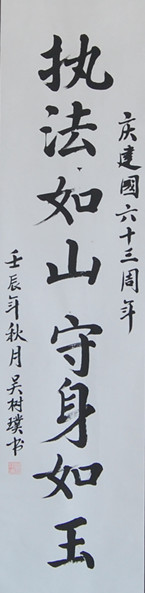 庆建國六十三周年
执法如山守身如玉
壬辰年秋月吴树璞书